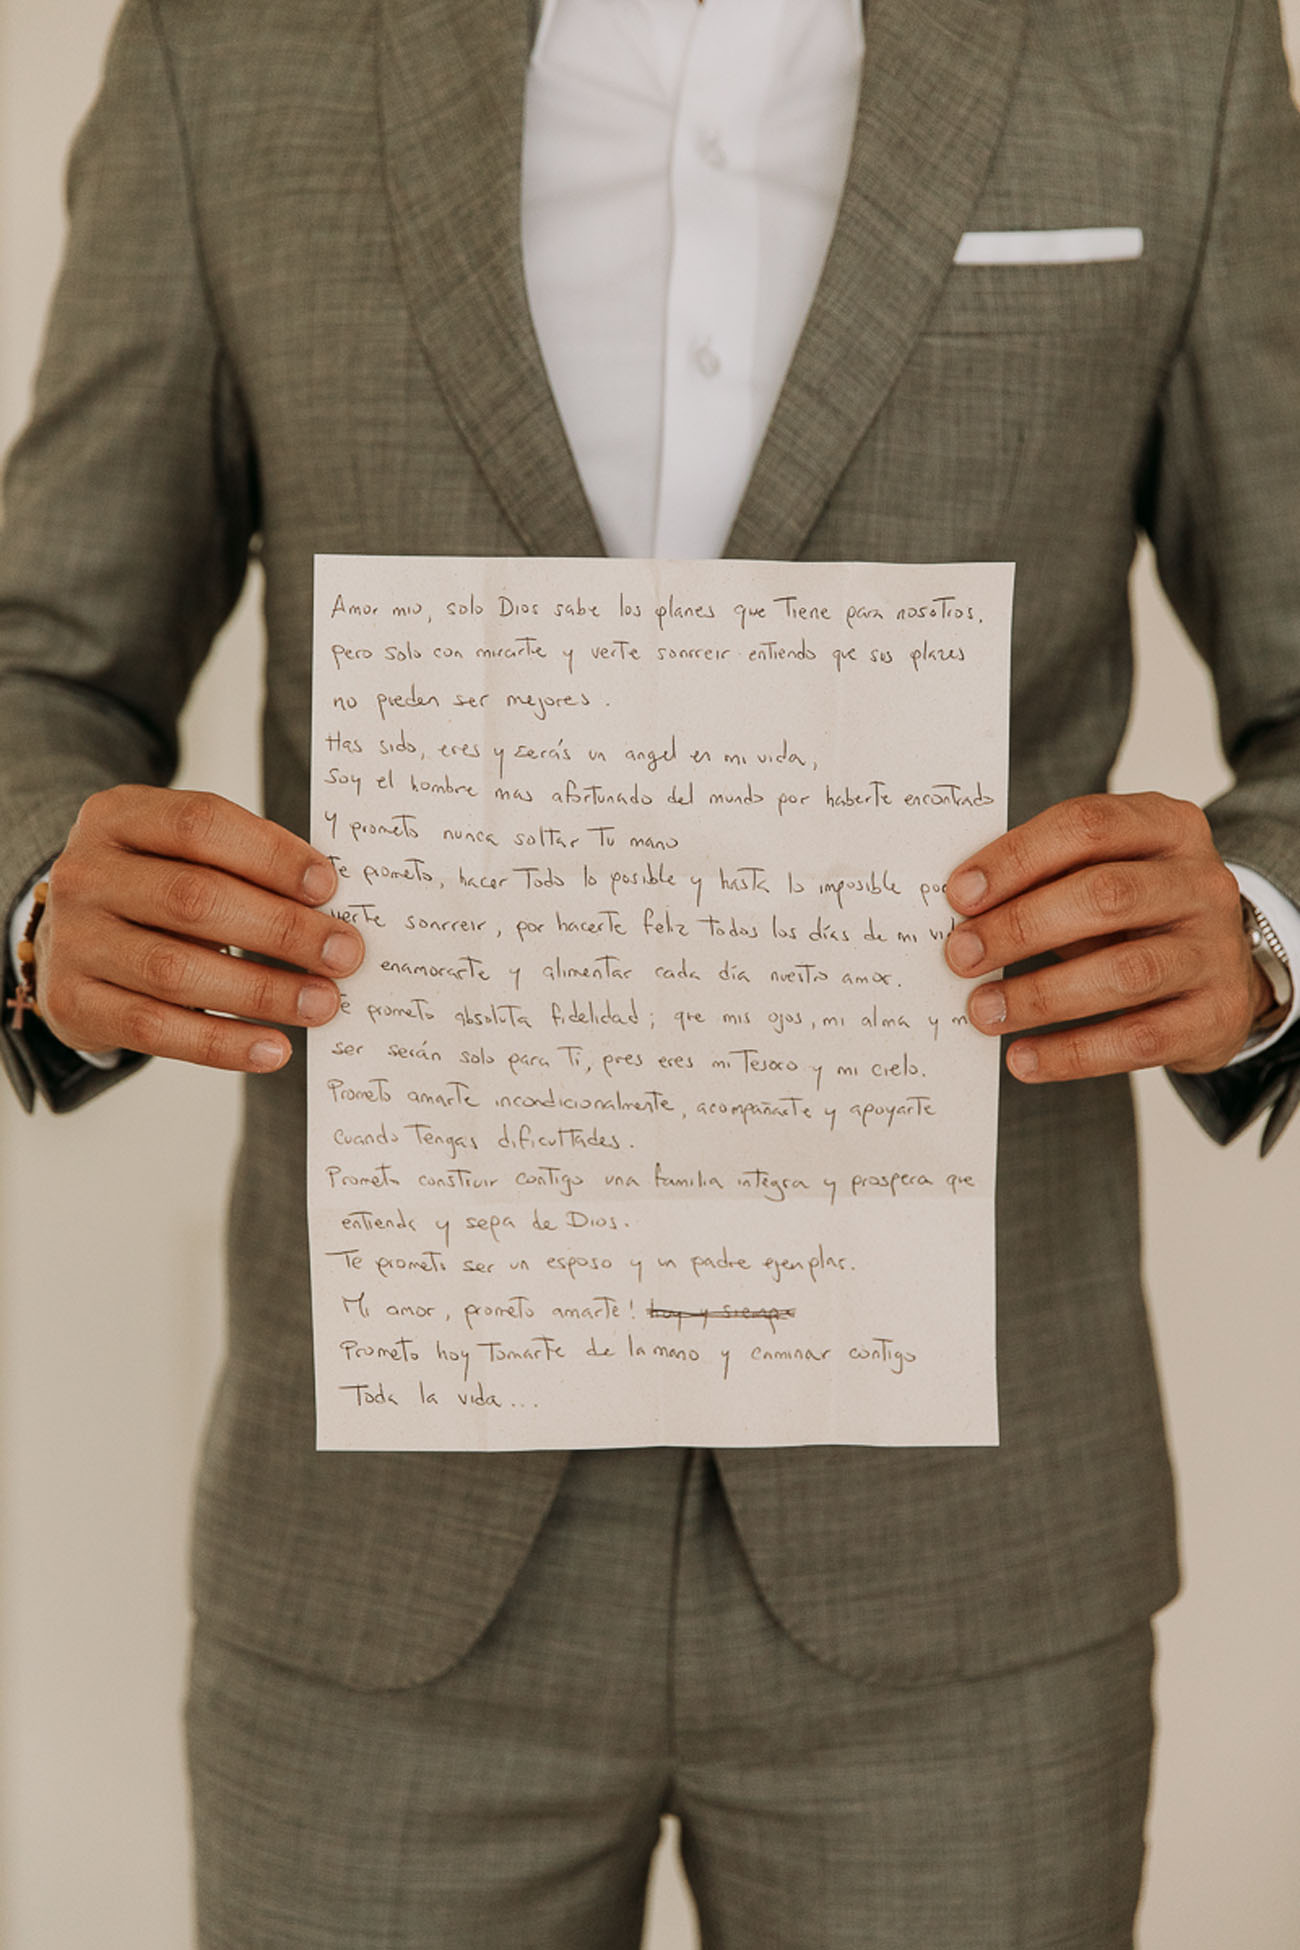 Amor mio, solo Dios sabe los planes que Tiene para nosotros.
pero solo con mirarte y verte sonrreir entiendo que sus planes
no pueden ser mejores.
Has sido, eres y serás un angel en mi vida,
Soy el hombre mas afortunado del mundo por haberte encontrado
Y prometo nunca soltar Tu mano
Te prometo, hacer Todo lo posible y hasta lo imposible por
verte sonrreir, por hacerte feliz Todos los días de mi vid
enamorarte y alimentar cada día nuestro amor.
Te prometo absoluta fidelidad; que mis ojos, mi alma y m
ser serán solo para Ti, pues eres mi Tesoro y mi cielo.
Prometo amarte incondicionalmente, acompañarte y apoyarte
cuando Tengas dificultades.
Prometo construir contigo una familia integra y prospera que
entienda y sepa de Dios.
Te prometo ser un esposo y un padre ejemplar.
Mi amor, prometo amarte! hoy y siempre
Prometo hoy Tomarte de la mano y caminar contigo
Toda la vida...